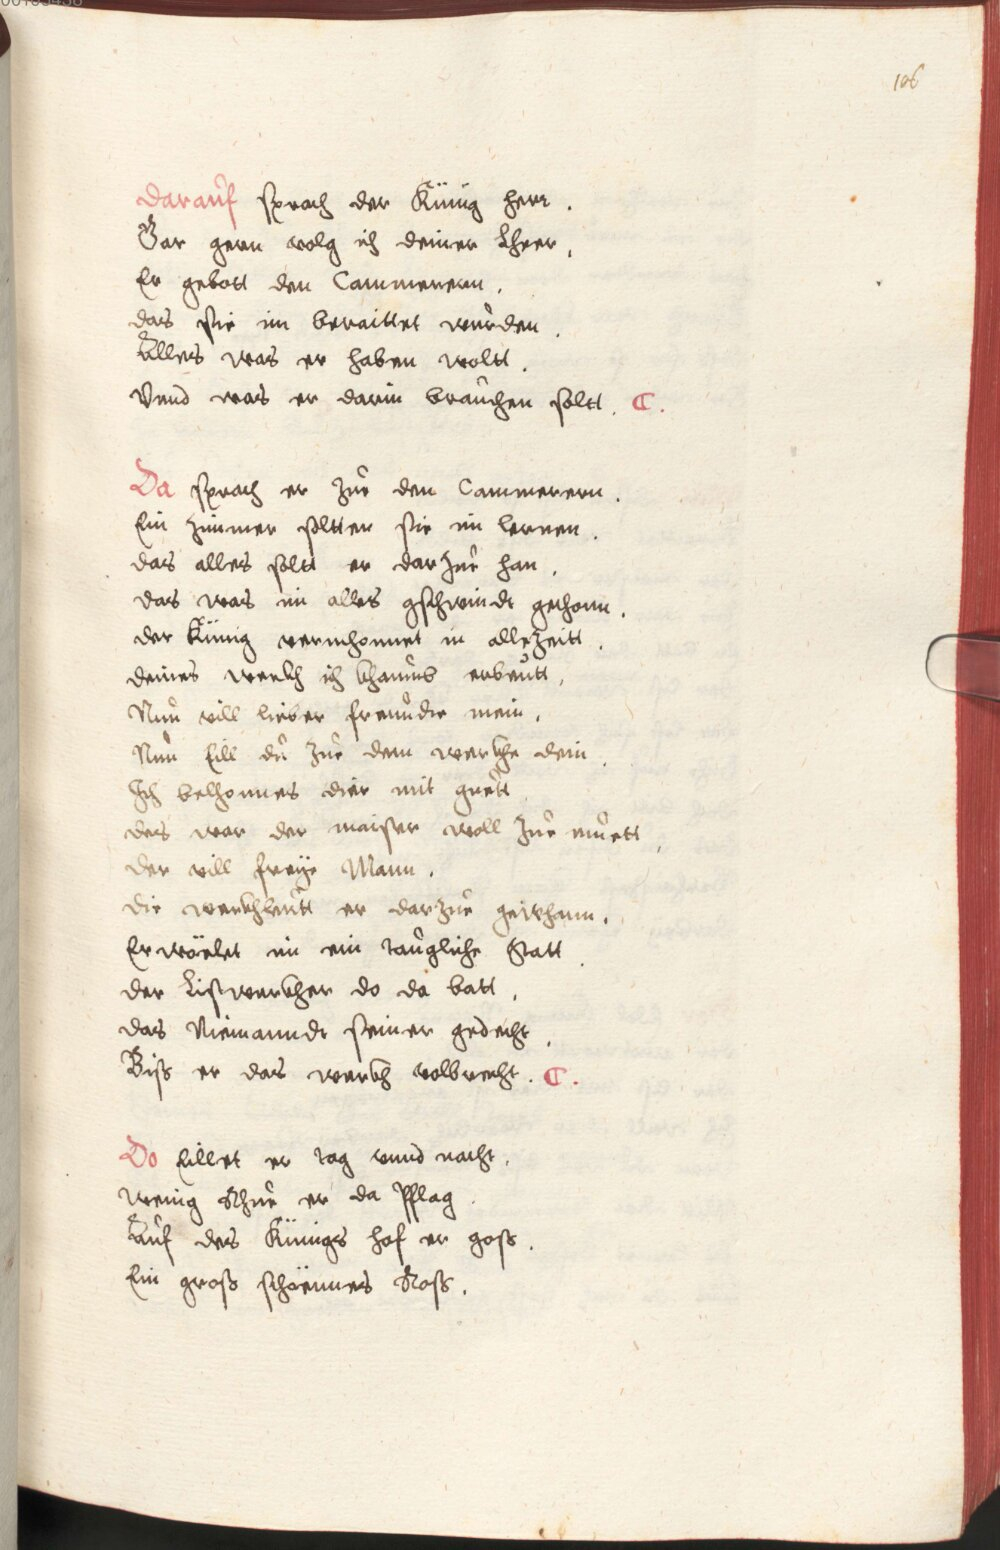 106
Darauf sprach der Künig herr.
Gar gern volg ich deiner Lheer,
Er gebott den Cammerern,
das sie im beraittet wurden.
Alles was er haben woltt.
Vnnd was er darin brauchen soltt. C.
Da sprach er zue den Cammerern.
Ein zimmer soltten sie im lernen.
das alles soltt er darzue han,
das was im alles gschwindt gethonn.
der Künig vermhonnet in allezeitt.
deines werkh ich khaumb erbeutt,
Nun vill lieber freundte mein,
Nun Eill du zue dem werkhe dein.
Ich belhonnes dier mit guett
des war der maister woll zue muett,
der vill freye Mann.
die werkhleutt er darzue gewhann.
Erwöelet im ein taugliche Statt.
der Listwerkher do da batt,
das Niemanndt seiner gedecht,
Biss er das werkh volbrecht. C.
Do Eillet er tag vnnd nacht,
wenig Rhue er da Pflag.
Auf des Künigs hof er goss.
Ein gross schöennes Ross.